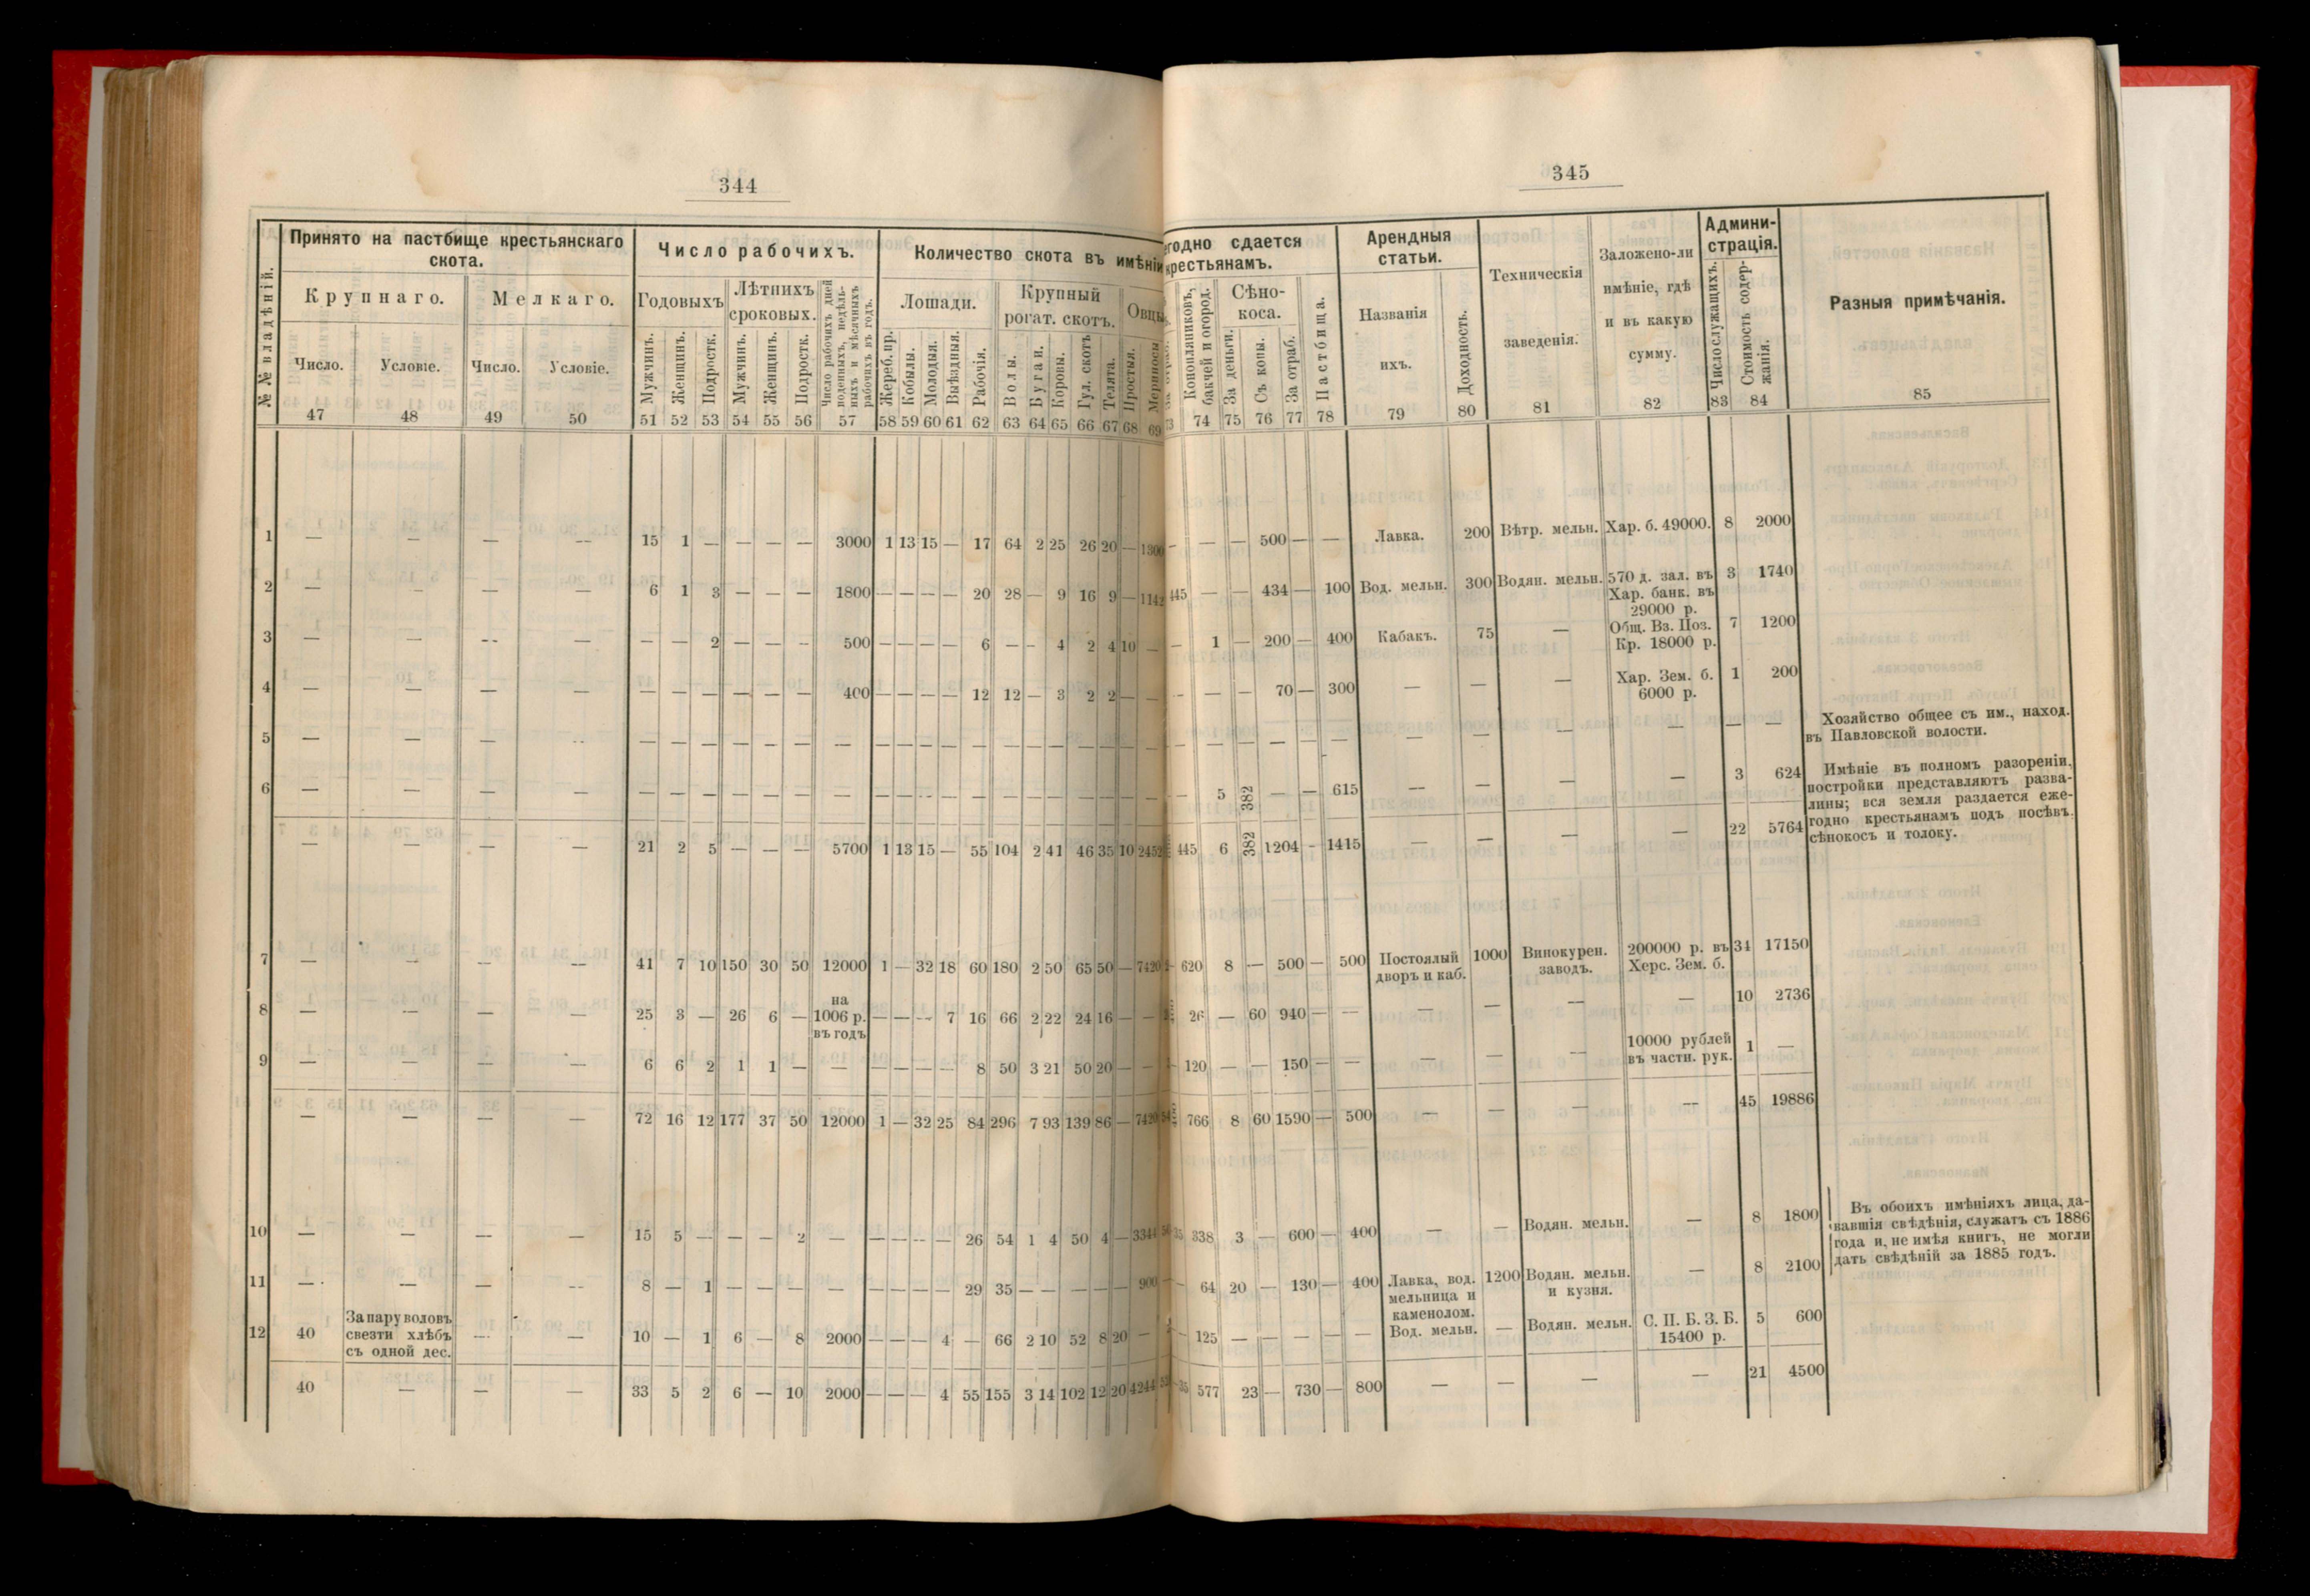 344
№№ владѣній.
Принято на пастбище крестьянскаго скота.
Число рабочихъ.
Количество скота въ имѣніи
Крупнаго.
Мелкаго.
Годовыхъ
Лѣтнихъ сроковыхъ.
Число рабочихъ дней поденныхъ, недѣльныхъ и мѣсячныхъ рабочихъ въ годъ.
Лошади.
Крупный рогат. скотъ.
Овцы
Число.
Условіе.
Число.
Условіе.
Мужчинъ.
Женщинъ.
Подростк.
Мужчинъ.
Женщинъ.
Подростк.
Жереб. пр.
Кобылы.
Молодыя.
Выѣздныя.
Рабочія.
Волы.
Бугаи.
Коровы.
Гул. скотъ
Телята.
Простыя.
Мериносы
47 48 49 50 51 52 53 54 55 56 57 58 59 60 61 62 63 64 65 66 67 68 69
1 — — — — 15 1 — — — — 3000 1 13 15 — 17 64 2 25 26 20 — 1300
2 — — — — 6 1 3 — — — 1800 — — — — 20 28 — 9 16 9 — 1142
3 — — — — — — 2 — — — 500 — — — — 6 — — 4 2 4 10 —
4 — — — — — — — — — — 400 — — — — 12 12 — 3 2 2 — —
5 — — — — — — — — — — — — — — — — — — — — — — —
6 — — — — — — — — — — — — — — — — — — — — — — —
— — — — 21 2 5 — — — 5700 1 13 15 — 55 104 2 41 46 35 10 2452
7 — — — — 41 7 10 150 30 50 12000 1 — 32 18 60 180 2 50 65 50 — 7420
8 — — — — 25 3 — 26 6 — на 1006 р. въ годъ — — — 7 16 66 2 22 24 16 — —
9 — — — — 6 6 2 1 1 — — — — — — 8 50 3 21 50 20 — —
— — — — 72 16 12 177 37 50 12000 1 — 32 25 84 296 7 93 139 86 — 7420
10 — — — — 15 5 — — — 2 — — — — — 26 54 1 4 50 4 — 3344
11 — — — — 8 — 1 — — — — — — — — 29 35 — — — — — 900
12 40 За пару воловъ свезти хлѣбъ съ одной дес. — — 10 — 1 6 — 8 2000 — — — 4 — 66 2 10 52 8 20 —
40 — — — 33 5 2 6 — 10 2000 — — — 4 55 155 3 14 102 12 20 4244
345
егодно сдается крестьянамъ.
Арендныя статьи.
Техническія заведенія.
Заложено-ли имѣніе, гдѣ и въ какую сумму.
Админи-страція.
Разныя примѣчанія.
Конопляниковъ, бакчей и огород.
Сѣно-коса.
За деньги.
Съ копы.
За отраб.
Пастбища.
Названія ихъ.
Доходность.
Число служащихъ.
Стоимость содер-жанія.
73 74 75 76 77 78 79 80 81 82 83 84 85
— — — 500 — — Лавка. 200 Вѣтр. мельн. Хар. б. 49000. 8 2000
445 — — 434 — 100 Вод. мельн. 300 Водян. мельн. 570 д. зал. въ Хар. банк. въ 29000 р. 3 1740
— 1 — 200 — 400 Кабакъ. 75 — Общ. Вз. Поз. Кр. 18000 р. 7 1200
— — — 70 — 300 — — — Хар. Зем. б. 6000 р. 1 200
— — — — — — — — — — — — Хозяйство общее съ им., наход. въ Павловской волости.
— 5 382 — — 615 — — — — 3 624 Имѣніе въ полномъ разореніи,
постройки представляютъ разва-
лины; вся земля раздается еже-
годно крестьянамъ подъ посѣвъ,
сѣнокосъ и толоку.
445 6 382 1204 — 1415 — — — — 22 5764
620 8 — 500 — 500 Постоялый дворъ и каб. 1000 Винокурен. заводъ. 200000 р. въ Херс. Зем. б. 34 17150
26 — 60 940 — — — — — — 10 2736
120 — — 150 — — — — — 10000 рублей въ частн. рук. 1 —
766 8 60 1590 — 500 — — — — 45 19886
35 338 3 — 600 — 400 — — Водян. мельн. — 8 1800
— 64 20 — 130 — 400 Лавка, вод. мельница и каменолом. 1200 Водян. мельн. и кузня. — 8 2100
Въ обоихъ имѣніяхъ лица, да-
вавшія свѣдѣнія, служатъ съ 1886
года и, не имѣя книгъ, не могли
дать свѣдѣній за 1885 годъ.
— 125 — — — — — Вод. мельн. — Водян. мельн. С. П. Б. З. Б. 15400 р. 5 600
35 577 23 — 730 — 800 — — — — 21 4500